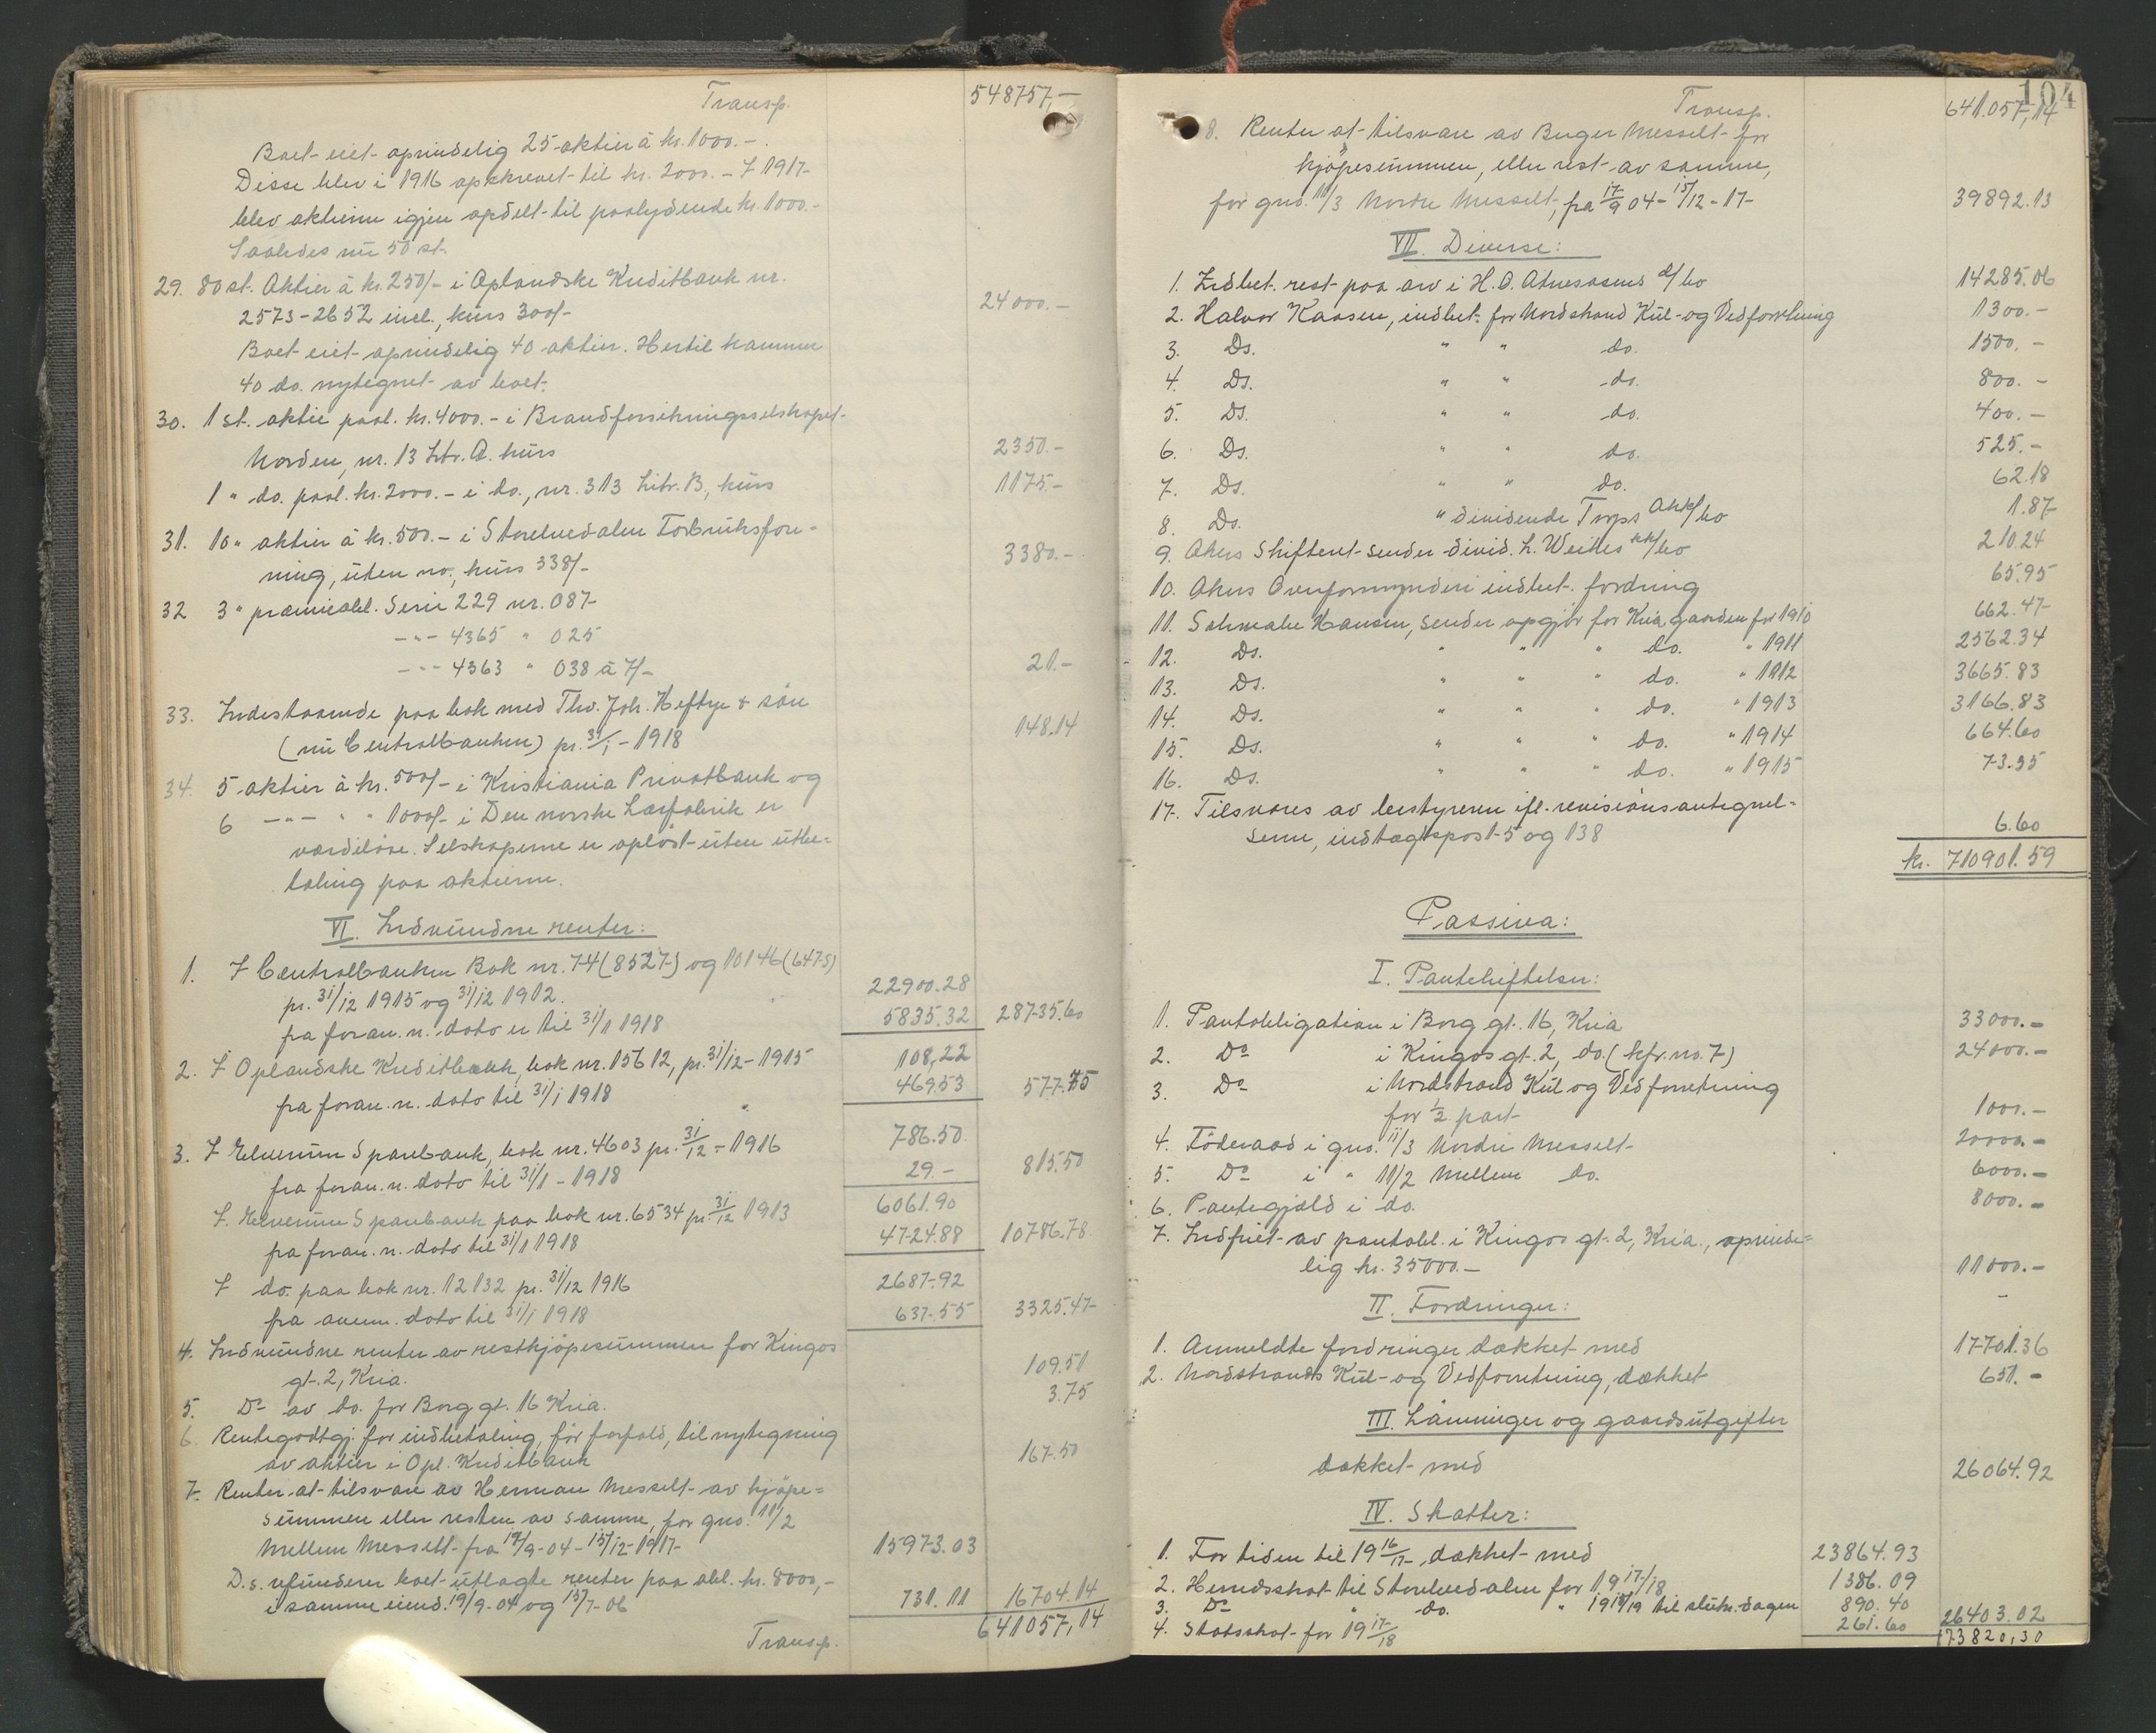 Transp. 548757,-
Boet eiet oprindelig 25 aktier à kr. 1000.-.
Disse blev i 1916 opskrevet til kr. 2000.- I 1917
blev aktierne igjen opdelt til paalydende kr. 1000.-
Saaledes nu 50 st.
29. 80 st. Aktier à kr. 250/- i Oplandske Kreditbank nr.
2573-2652 incl., kurs 300/- 24000.-
Boet eiet oprindelig 40 aktier. Hertil kommer
40 do. nytegnet av boet.
30. 1 st. aktie paal. kr. 4000.- i Brandforsikringsselskapet
Norden, nr. 13 Litr. A. kurs 2350.-
1 " do. paal. kr. 2000.- i do., nr. 313 Litr. B., kurs 1175.-
31. 10 " aktier à kr. 500.- i Storelvedalen Forbruksfore-
ning, uten no., kurs 338/- 3380.-
32 3 " præmieobl. Serie 229 nr. 087
-"- 4365 " 025
-"- 4363 " 038 à 7/- 21.-
33. Indestaaende paa bok med Tho. Joh. Heftye & søn
(nu Centralbanken) pr. 31/1-1918 148.14
34. 5 aktier à kr. 500/- i Kristiania Privatbank og
6 -"- " " 1000/- i Den norske Lærfabrik er
værdiløse. Selskaperne er opløst uten utbe=
taling paa aktierne.
VI. Indvundne renter:
1. I Centralbanken Bok nr. 74 (8527) og 10146 (6475)
pr. 31/12 1915 og 31/12 1912. 22900.28
fra foran. n. dato er til 31/1 1918 5835.32 28735.60
2. I Oplandske Kreditbank, bok nr. 15612, pr. 31/12-1915 108,22
fra foran. n. dato til 31/1 1918 469.53 577.75
3. I Elverum Sparebank, bok nr. 4603 pr. 31/12-1916 786.50
fra foran. n. dato til 31/1-1918 29.- 815.50
I. Elverum Sparebank paa bok nr. 6534 pr. 31/12 1913 6061.90
fra foran. n. dato til 31/1 1918 4724.88 10786.78
I do. paa bok nr. 12132 pr. 31/12 1916 2687.92
fra anum. dato til 31/1 1918 637.55 3325.47
4. Indvundne renter av restkjøpesummen for Kingos
gt. 2, Kria. 109.51
5. Do av do. for Borg gt. 16 Kria. 3.75
6. Rentegodtgj. for indbetaling, før forfald, til nytegning
av aktier i Opl. Kreditbank 167.50
7. Renter at tilsvare av Herman Messelt av kjøpe=
summen eller resten av samme, for gno. 11/2
Mellem Messelt fra 19/9-04-15/12-1917 15973.03
D.s. refunderer boet utlagte renter paa obl. kr. 8000,-
i samme eiend. 19/9-04 og 15/7-06 731.11 16704.14
Transp. 641057,14
104
Transp. 641.057,14
8. Renter at tilsvare av Birger Messelt for
kjøpesummen, eller rest av samme,
for gno. 11/3 Nordre Messelt, fra 17/9 04-15/12-17 39892.13
VII. Diverse:
1. Indbet. rest paa arv i H. O. Atnesasens d/bo 14285.06
2. Halvor Kaasen, indbet. for Nordstrand Kul- og Vedforretning 1300.-
3. Ds. " " do. 1500.-
4. Ds. " " do. 800.-
5. Ds. " " do. 400.-
6. Ds. " " do. 525.-
7. Ds. " " do. 62.18
8. Ds. " dividende Torps bo 1.87
9. Akers Skifteret sender divid. L. Weilles kk/bo 210.24
10. Akers Overformynderi indbet. fordring 65.95
11. Hansen, sender opgjør for Kria gaarden for 1910 662.47
12. Ds. " " " do. " 1911 2562.34
13. Ds. " " " do. " 1912 3665.83
14. Ds. " " " do. " 1913 3166.83
15. Ds. " " " do. " 1914 664.60
16. Ds. " " " do. " 1915 73.35
17. Tilsvares av bestyreren ifl. revisionsantegnel-
serne, indtægtspost 5 og 138 6.60
kr. 710901.59
Passiva:
I. Pantehæftelser:
1. Pantobligation i Borg gt. 16, Kria 33000.-
2. Do i Kingos gt. 2, do. (kfr. no. 7) 24000.-
3. Do i Nordstrand Kul og Vedforretning
for 1/2 part 1000.-
4. Föderaad i gno. 11/3 Nordre Messelt 20000.-
5. Do i " 11/2 Mellem do. 6000.-
6. Pantegjæld i do. 8000.-
7. Indfriet av pantobl. i Kingos gt. 2, Kria., oprinde=
lig kr. 35000.- 11000.-
II. Fordringer:
1. Anmeldte fordringer dækket med 17701.36
2. Nordstrands Kul- og Vedforretning, dækket 651.-
III. Lønninger og gaardsutgifter
dækket med 26064.92
IV. Skatter:
1. For tiden til 1916/17, dækket med 23864.93
2. Herredsskat til Storelvedalen for 1917/18 1386.09
3. Do " do. " 1918/19 til slutn. dagen 890.40
4. Statsskat for 1917/18 261.60 26403.02
173820,30